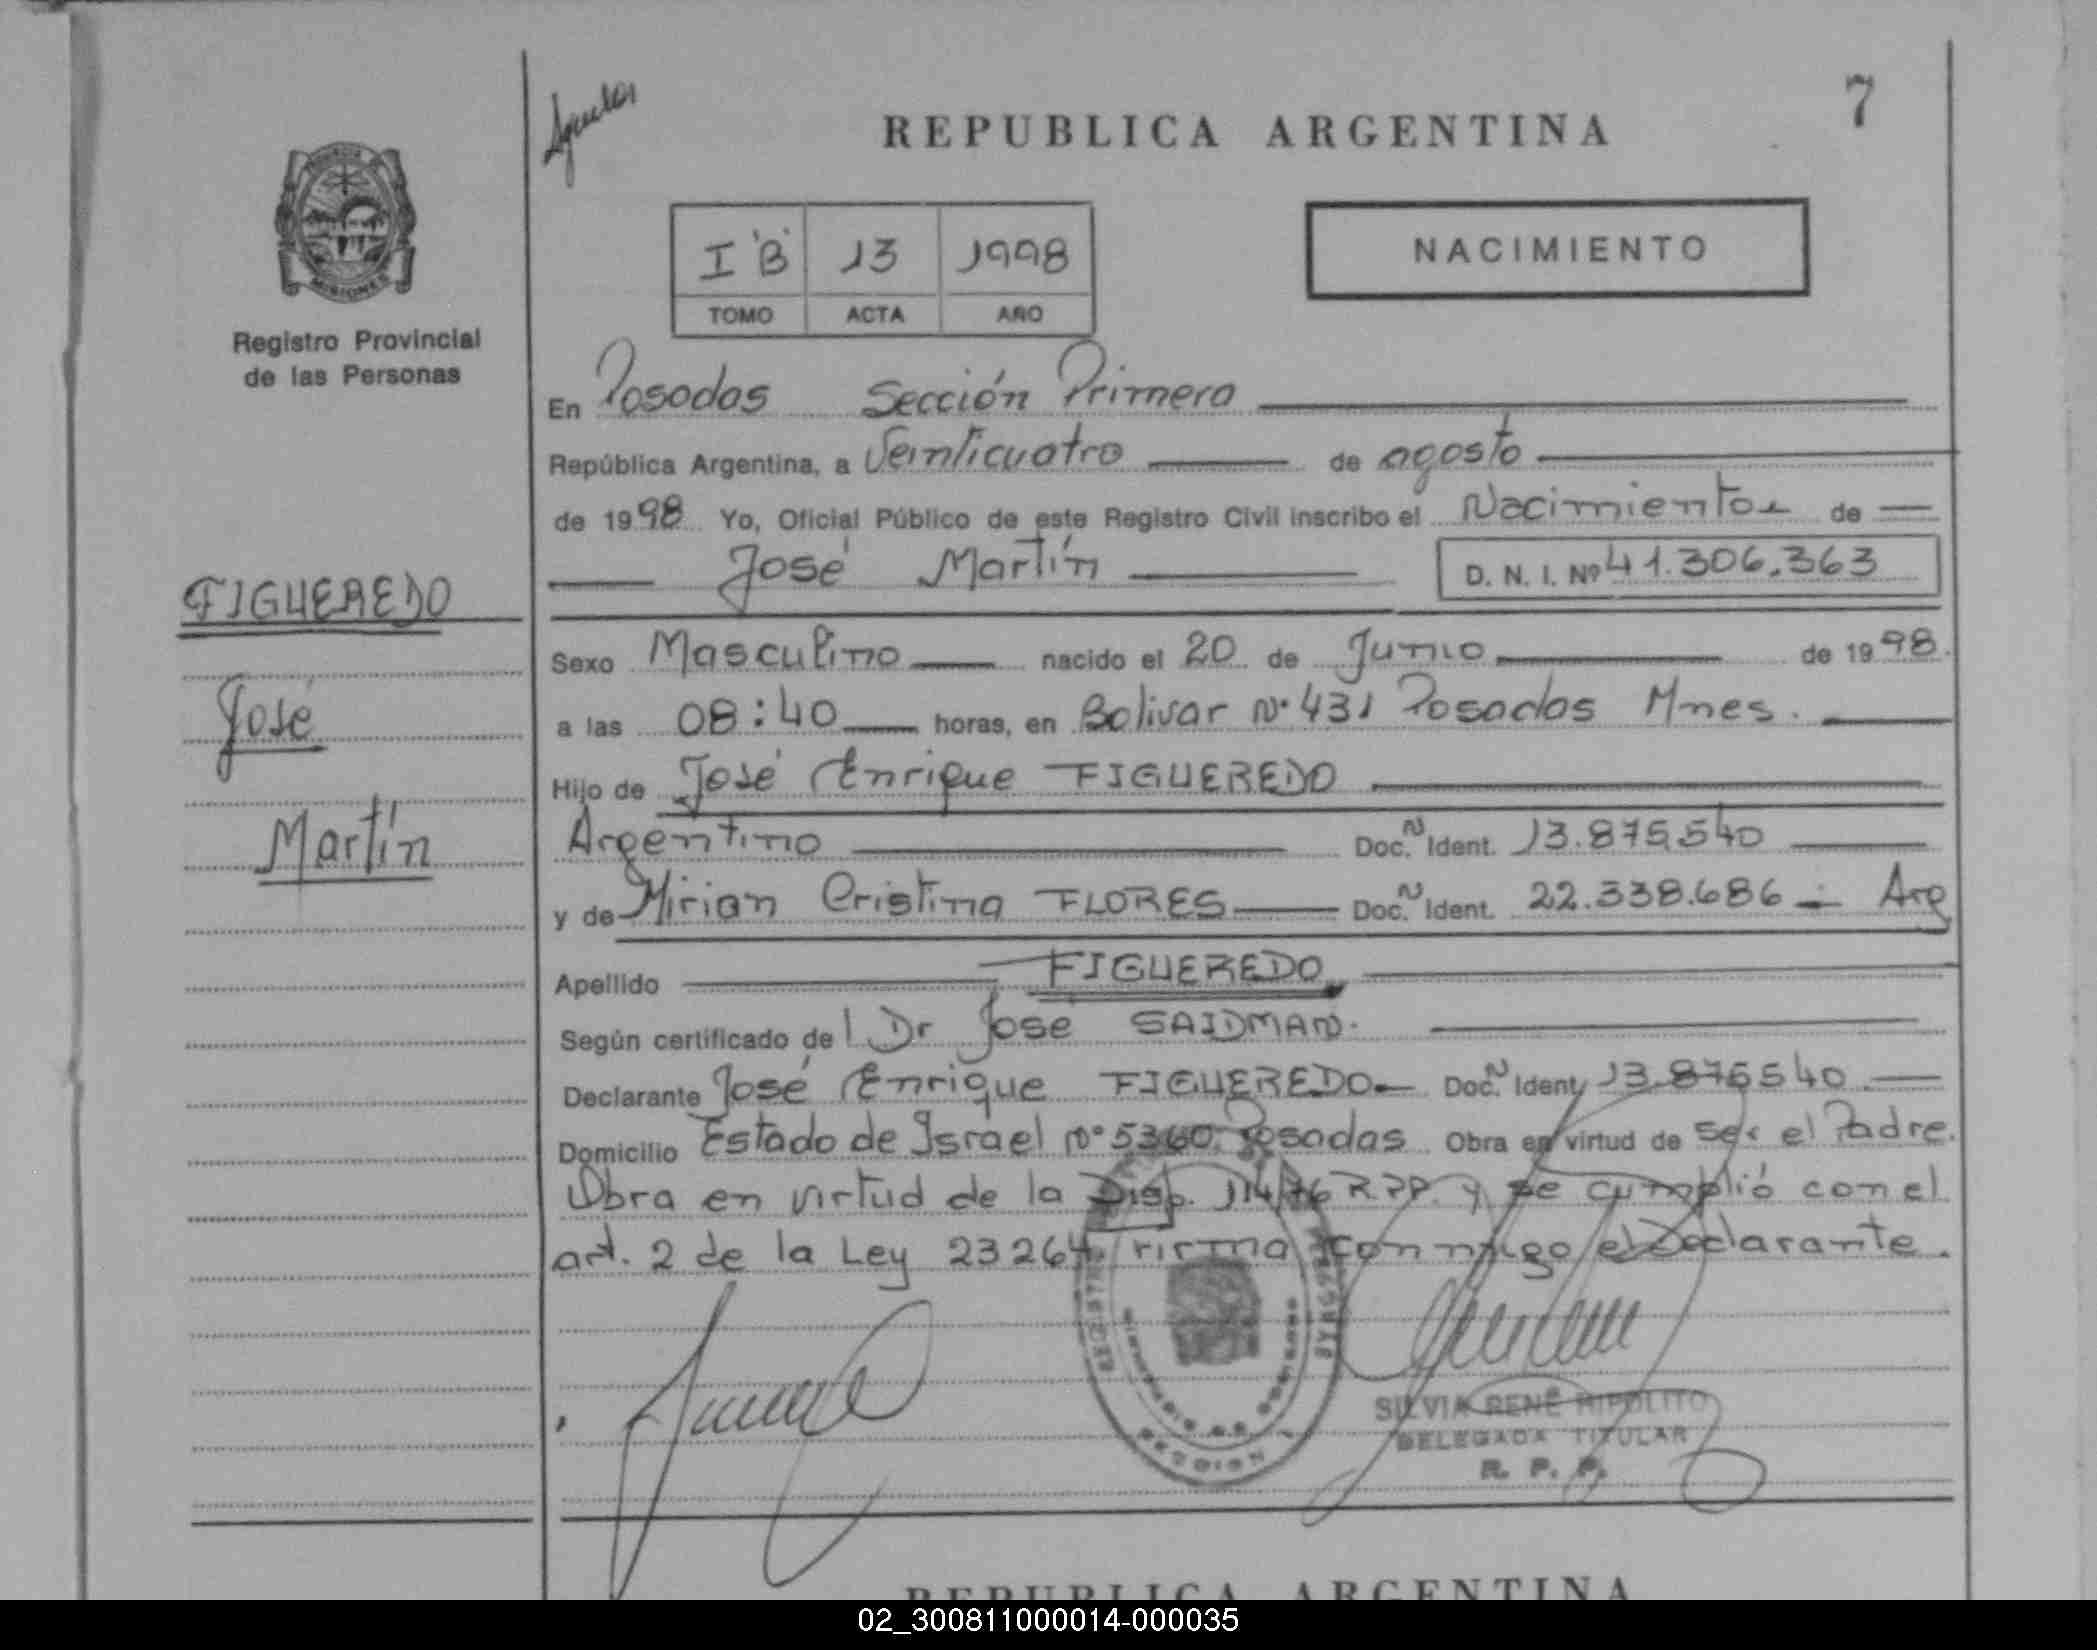 Aguilar
REPUBLICA ARGENTINA
7
PROVINCIA
MISIONES
Registro Provincial
de las Personas
I "B" 13 1998
TOMO ACTA AÑO
NACIMIENTO
En Posadas Sección Primera
República Argentina, a Veinticuatro de agosto
de 1998 Yo, Oficial Público de este Registro Civil inscribo el Nacimiento de
José Martín D. N. I. Nº 41.306.363
FIGUEREDO
José
Martín
Sexo Masculino nacido el 20 de Junio de 1998.
a las 08:40 horas, en Bolivar Nº 431 Posadas Mnes.
Hijo de José Enrique FIGUEREDO
Argentino Doc. N Ident. 13.875.540
y de Mirian Cristina FLORES Doc. N Ident. 22.338.686 Arg
Apellido FIGUEREDO
Según certificado de l Dr José SAIDMAN.
Declarante José Enrique FIGUEREDO Doc. N Ident. 13.875540
Domicilio Estado de Israel Nº 5360. Posadas Obra en virtud de ser el Padre.
Obra en virtud de la Disp. 114/76 R.P.P. y se cumplió con el
art. 2 de la Ley 23264 firma conmigo el Declarante.
SILVIA RENÉ HIPOLITO
DELEGADA TITULAR
R. P. P.
REPUBLICA ARGENTINA
02_300811000014-000035